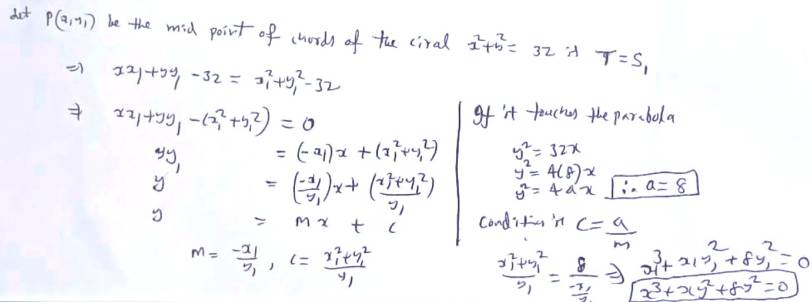 Let P(x₁,y₁) be the mid point of chords of the circal x²+y² = 32 is T=S₁
⇒ xx₁+yy₁ -32 = x₁²+y₁²-32
⇒ xx₁+yy₁ -(x₁²+y₁²) = 0
yy₁ = (-x₁)x + (x₁²+y₁²)
y = (-x₁/y₁)x + (x₁²+y₁²/y₁)
y = mx + c
m = -x₁/y₁, c = x₁²+y₁²/y₁
If it touches the parabola
y² = 32x
y² = 4(8)x
y² = 4ax ∴ a=8
Condition is c = a/m
x₁²+y₁²/y₁ = 8/-x₁/y₁ ⇒ x₁³+x₁y₁²+8y₁² = 0
x³+xy²+8y²=0